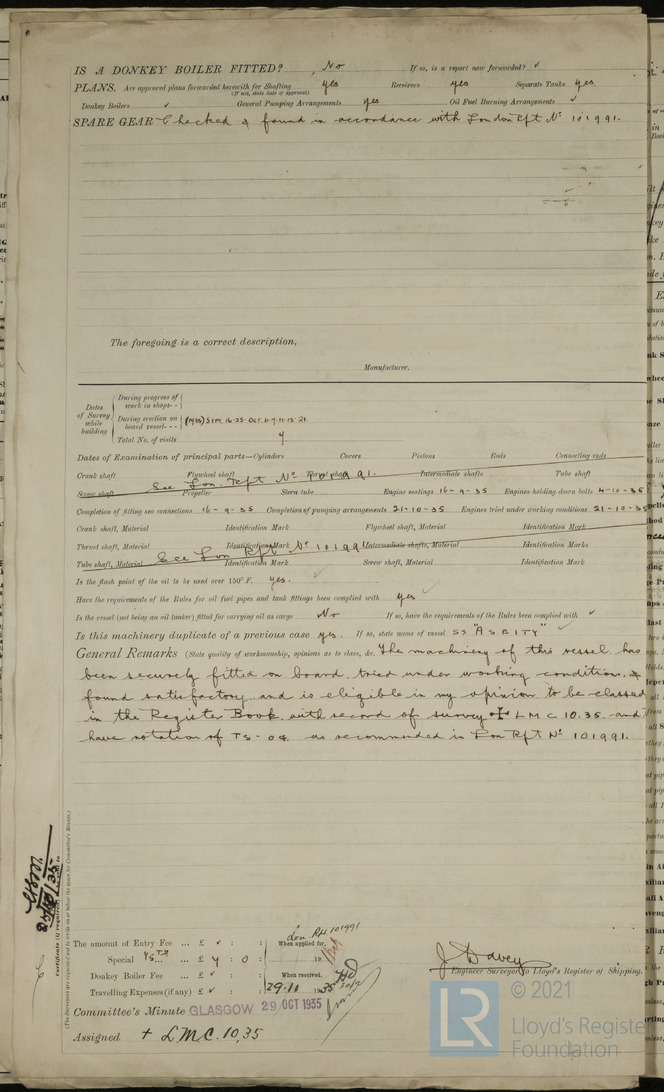 IS A DONKEY BOILER FITTED? No If so, is a report now forwarded? ✓
PLANS. Are approved plans forwarded herewith for Shafting yes Receivers yes Separate Tanks yes
(If not, state date of approval)
Donkey Boilers ✓ General Pumping Arrangements yes Oil Fuel Burning Arrangements ✓
SPARE GEAR Checked & found in accordance with London Rpt No 101991.
The foregoing is a correct description,
Manufacturer.
Dates of Survey while building
During progress of work in shops--
During erection on board vessel--- (1935) SEPT. 16. 25. OCT. 4. 9. 11. 15. 21
Total No. of visits
Dates of Examination of principal parts—Cylinders Covers Pistons Rods Connecting rods
Crank shaft Flywheel shaft Thrust shaft Intermediate shafts Tube shaft
See Lon. Rpt No 101991.
Screw shaft Propeller Stern tube Engine seatings 16-9-35 Engines holding down bolts 4-10-35
Completion of fitting sea connections 16-9-35 Completion of pumping arrangements 21-10-35 Engines tried under working conditions 21-10-35
Crank shaft, Material Identification Mark Flywheel shaft, Material Identification Mark
Thrust shaft, Material Identification Mark Intermediate shafts, Material Identification Marks
See Lon Rpt No 101991
Tube shaft, Material Identification Mark Screw shaft, Material Identification Mark
Is the flash point of the oil to be used over 150° F. yes. ✓
Have the requirements of the Rules for oil fuel pipes and tank fittings been complied with yes ✓
Is the vessel (not being an oil tanker) fitted for carrying oil as cargo No If so, have the requirements of the Rules been complied with ✓
Is this machinery duplicate of a previous case yes. If so, state name of vessel SS "ASEITY" ✓
General Remarks (State quality of workmanship, opinions as to class, &c. The machinery of this vessel has
been securely fitted on board, tried under working condition, &
found satisfactory and is eligible in my opinion to be classed
in the Register Book with record of survey LMC 10.35. and
have notation of TS-OG. as recommended in Lon Rpt No 101991.
(The Surveyors are requested not to write on or below the space for Committee's Minute.)
Lon Rpt 101991
The amount of Entry Fee ... £ ✓ : : When applied for,
Special ... £ 4 : 0 : 19
Donkey Boiler Fee ... £ ✓ : : When received,
Travelling Expenses (if any) £ ✓ : : 29.11 1935
J. Davey
Engineer Surveyor to Lloyd's Register of Shipping.
Committee's Minute GLASGOW 29 OCT 1935
Assigned + LMC. 10,35
LR
© 2021
Lloyd's Register
Foundation